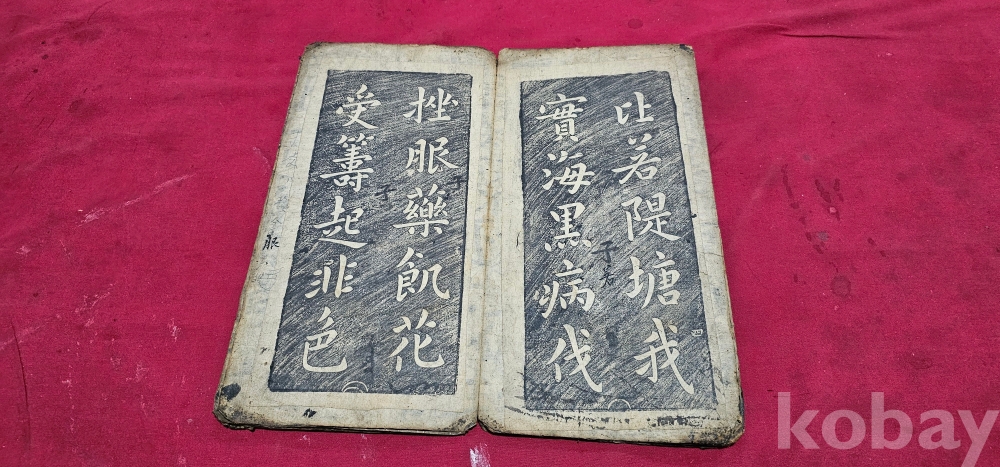 比若隄塘我
實海黒病伐
挫眼藥飢花
受籌起非色
子
子
子
眼
四
kobay